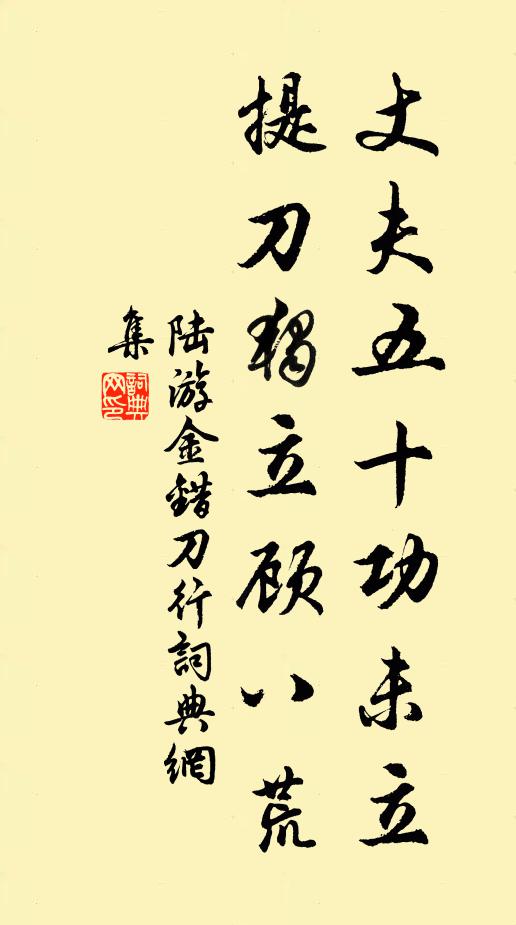 丈夫五十功未立
提刀獨立顾八荒
陆游金錯刀行詞典網
集
詞典
网印